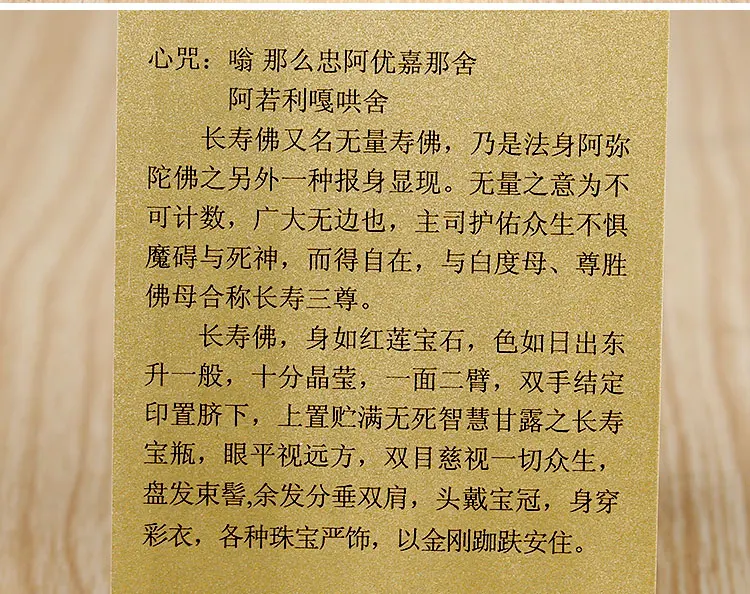 心咒：嗡 那么忠阿优嘉那舍
阿若利嘎哄舍
长寿佛又名无量寿佛，乃是法身阿弥
陀佛之另外一种报身显现。无量之意为不
可计数，广大无边也，主司护佑众生不惧
魔碍与死神，而得自在，与白度母、尊胜
佛母合称长寿三尊。
长寿佛，身如红莲宝石，色如日出东
升一般，十分晶莹，一面二臂，双手结定
印置脐下，上置贮满无死智慧甘露之长寿
宝瓶，眼平视远方，双目慈视一切众生，
盘发束髻,余发分垂双肩，头戴宝冠，身穿
彩衣，各种珠宝严饰，以金刚跏趺安住。